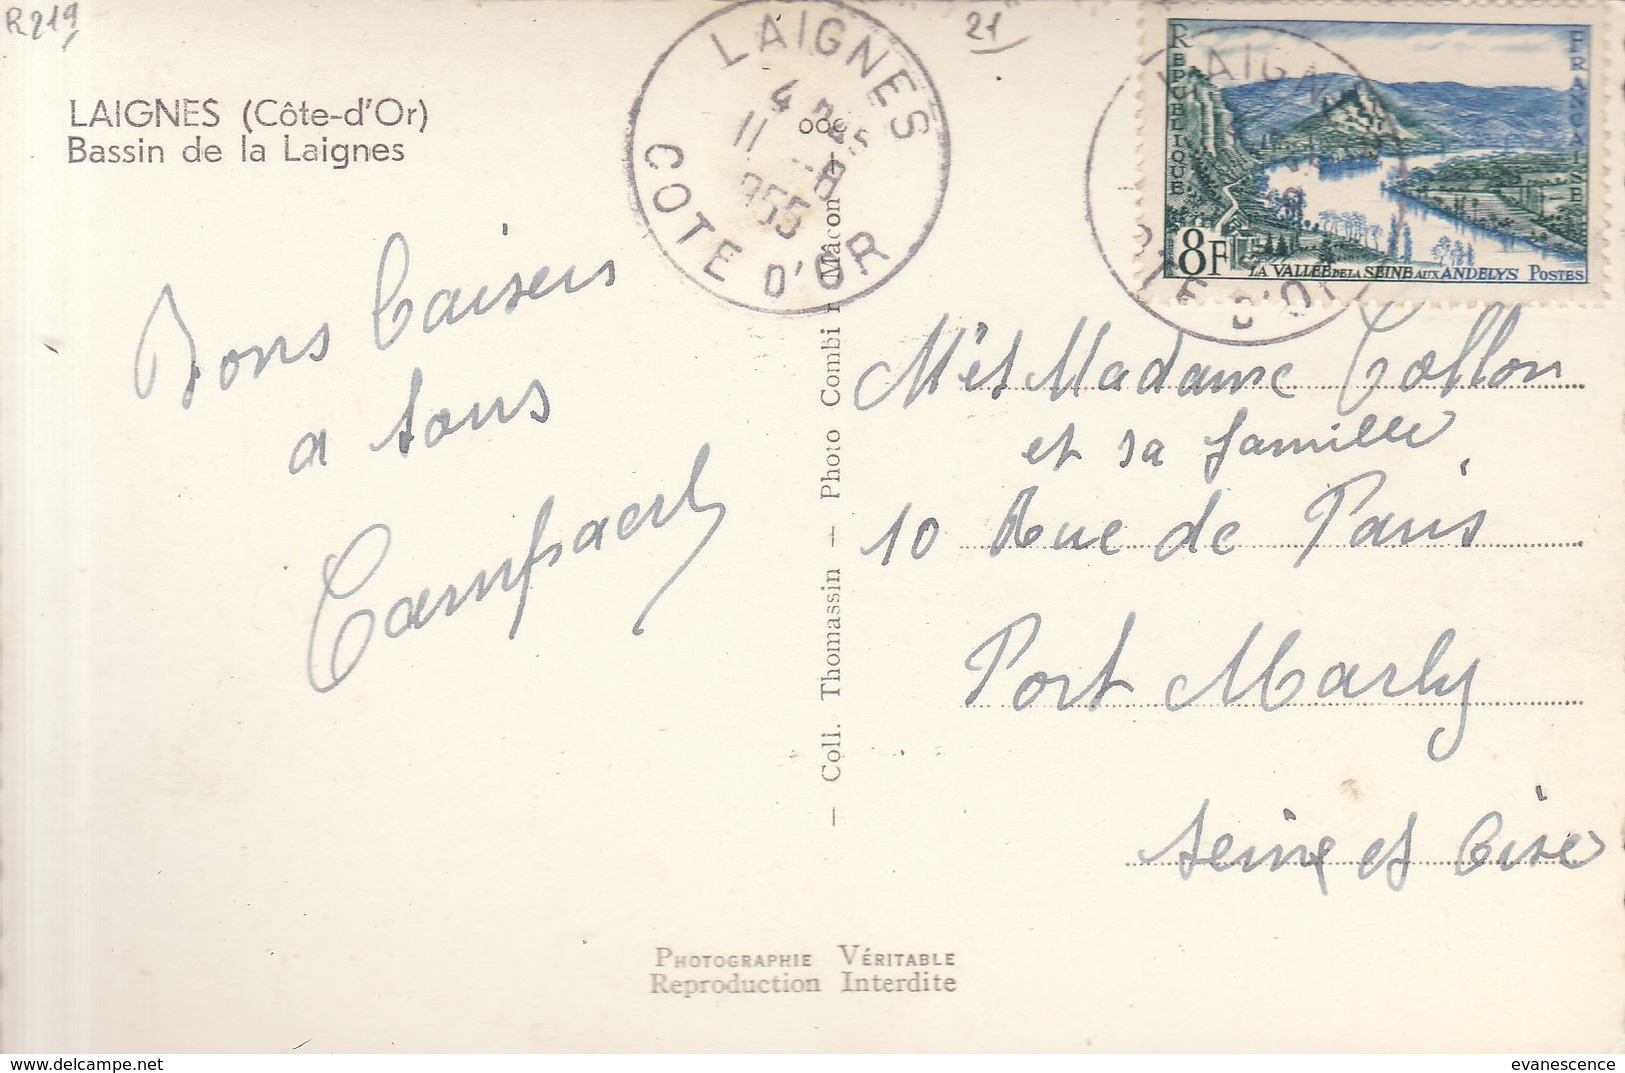 R219
21
LAIGNES (Côte-d'Or)
Bassin de la Laignes
LAIGNES
11 -8
955
COTE D'OR
Bons baisers
a tous
REPUBLIQUE FRANCAISE
8F
LA VALLEE DE LA SEINE AUX ANDELYS POSTES
— Coll. Thomassin — Photo Combier Mâcon —
M et Madame Collon
et sa famille
10 Rue de Paris
Port Marly
Seine et Oise
PHOTOGRAPHIE VÉRITABLE
Reproduction Interdite
https://www.delcampe.net
evanescence